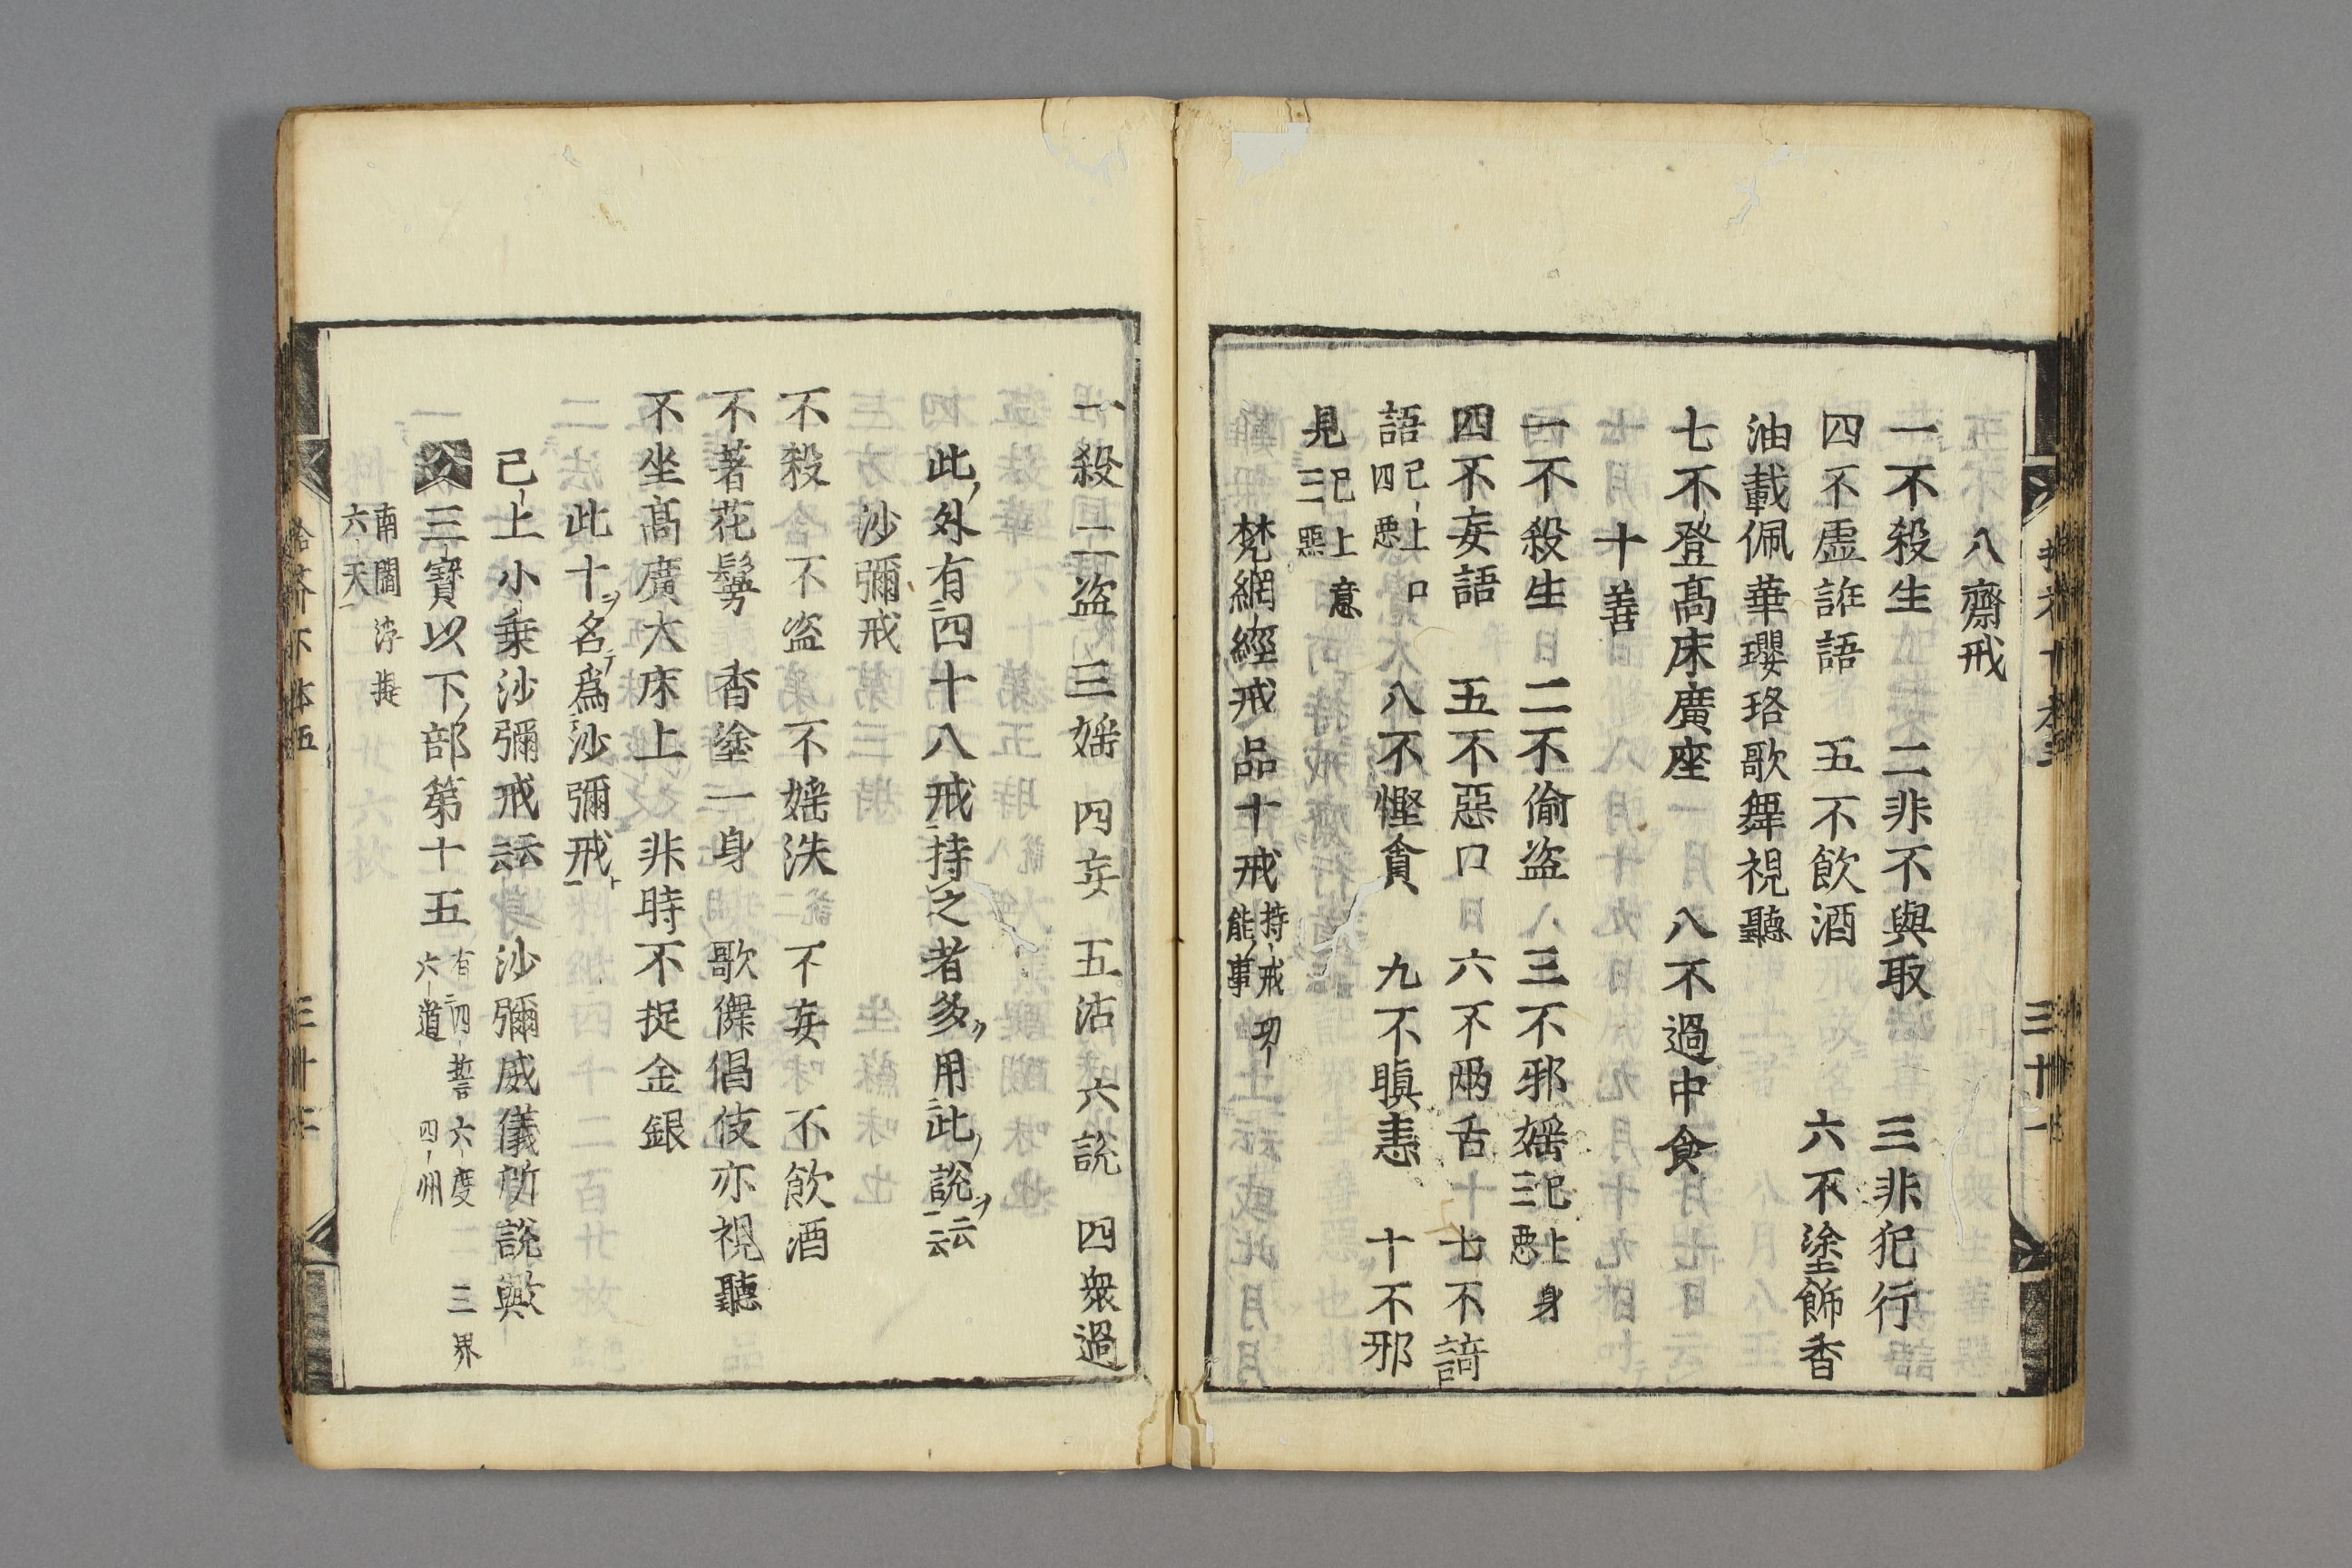 八齋戒
一不殺生　二非不與取　三非犯行
四不虛誑語　五不飲酒　六不塗飾香
油載佩華瓔珞歌舞視聽
七不登髙床廣座　八不過中食
十善
一不殺生　二不偷盗　三不邪婬已上身三惡
四不妄語　五不惡口　六不兩舌　七不誵
語已上口四惡　八不慳貪　九不瞋恚　十不邪
見已上意三惡
梵網經戒品十戒持戒功能事
三十一
一殺　二盗　三婬　四妄　五沽　六説　四衆過
此外有四十八戒持之者多ク用此説ヲ云云
沙彌戒
不殺　不盗　不婬泆　不妄　不飲酒
不著花鬘　香塗一身　歌儛倡伎亦視聽
不坐髙廣大床上　非時不捉金銀
此十ヲ名テ爲沙彌戒ト
已上小乗沙彌戒云云　沙彌威儀所說歟
三寳以下部第十五有四誓　六度　三界六道　四州
南閻浮提六天